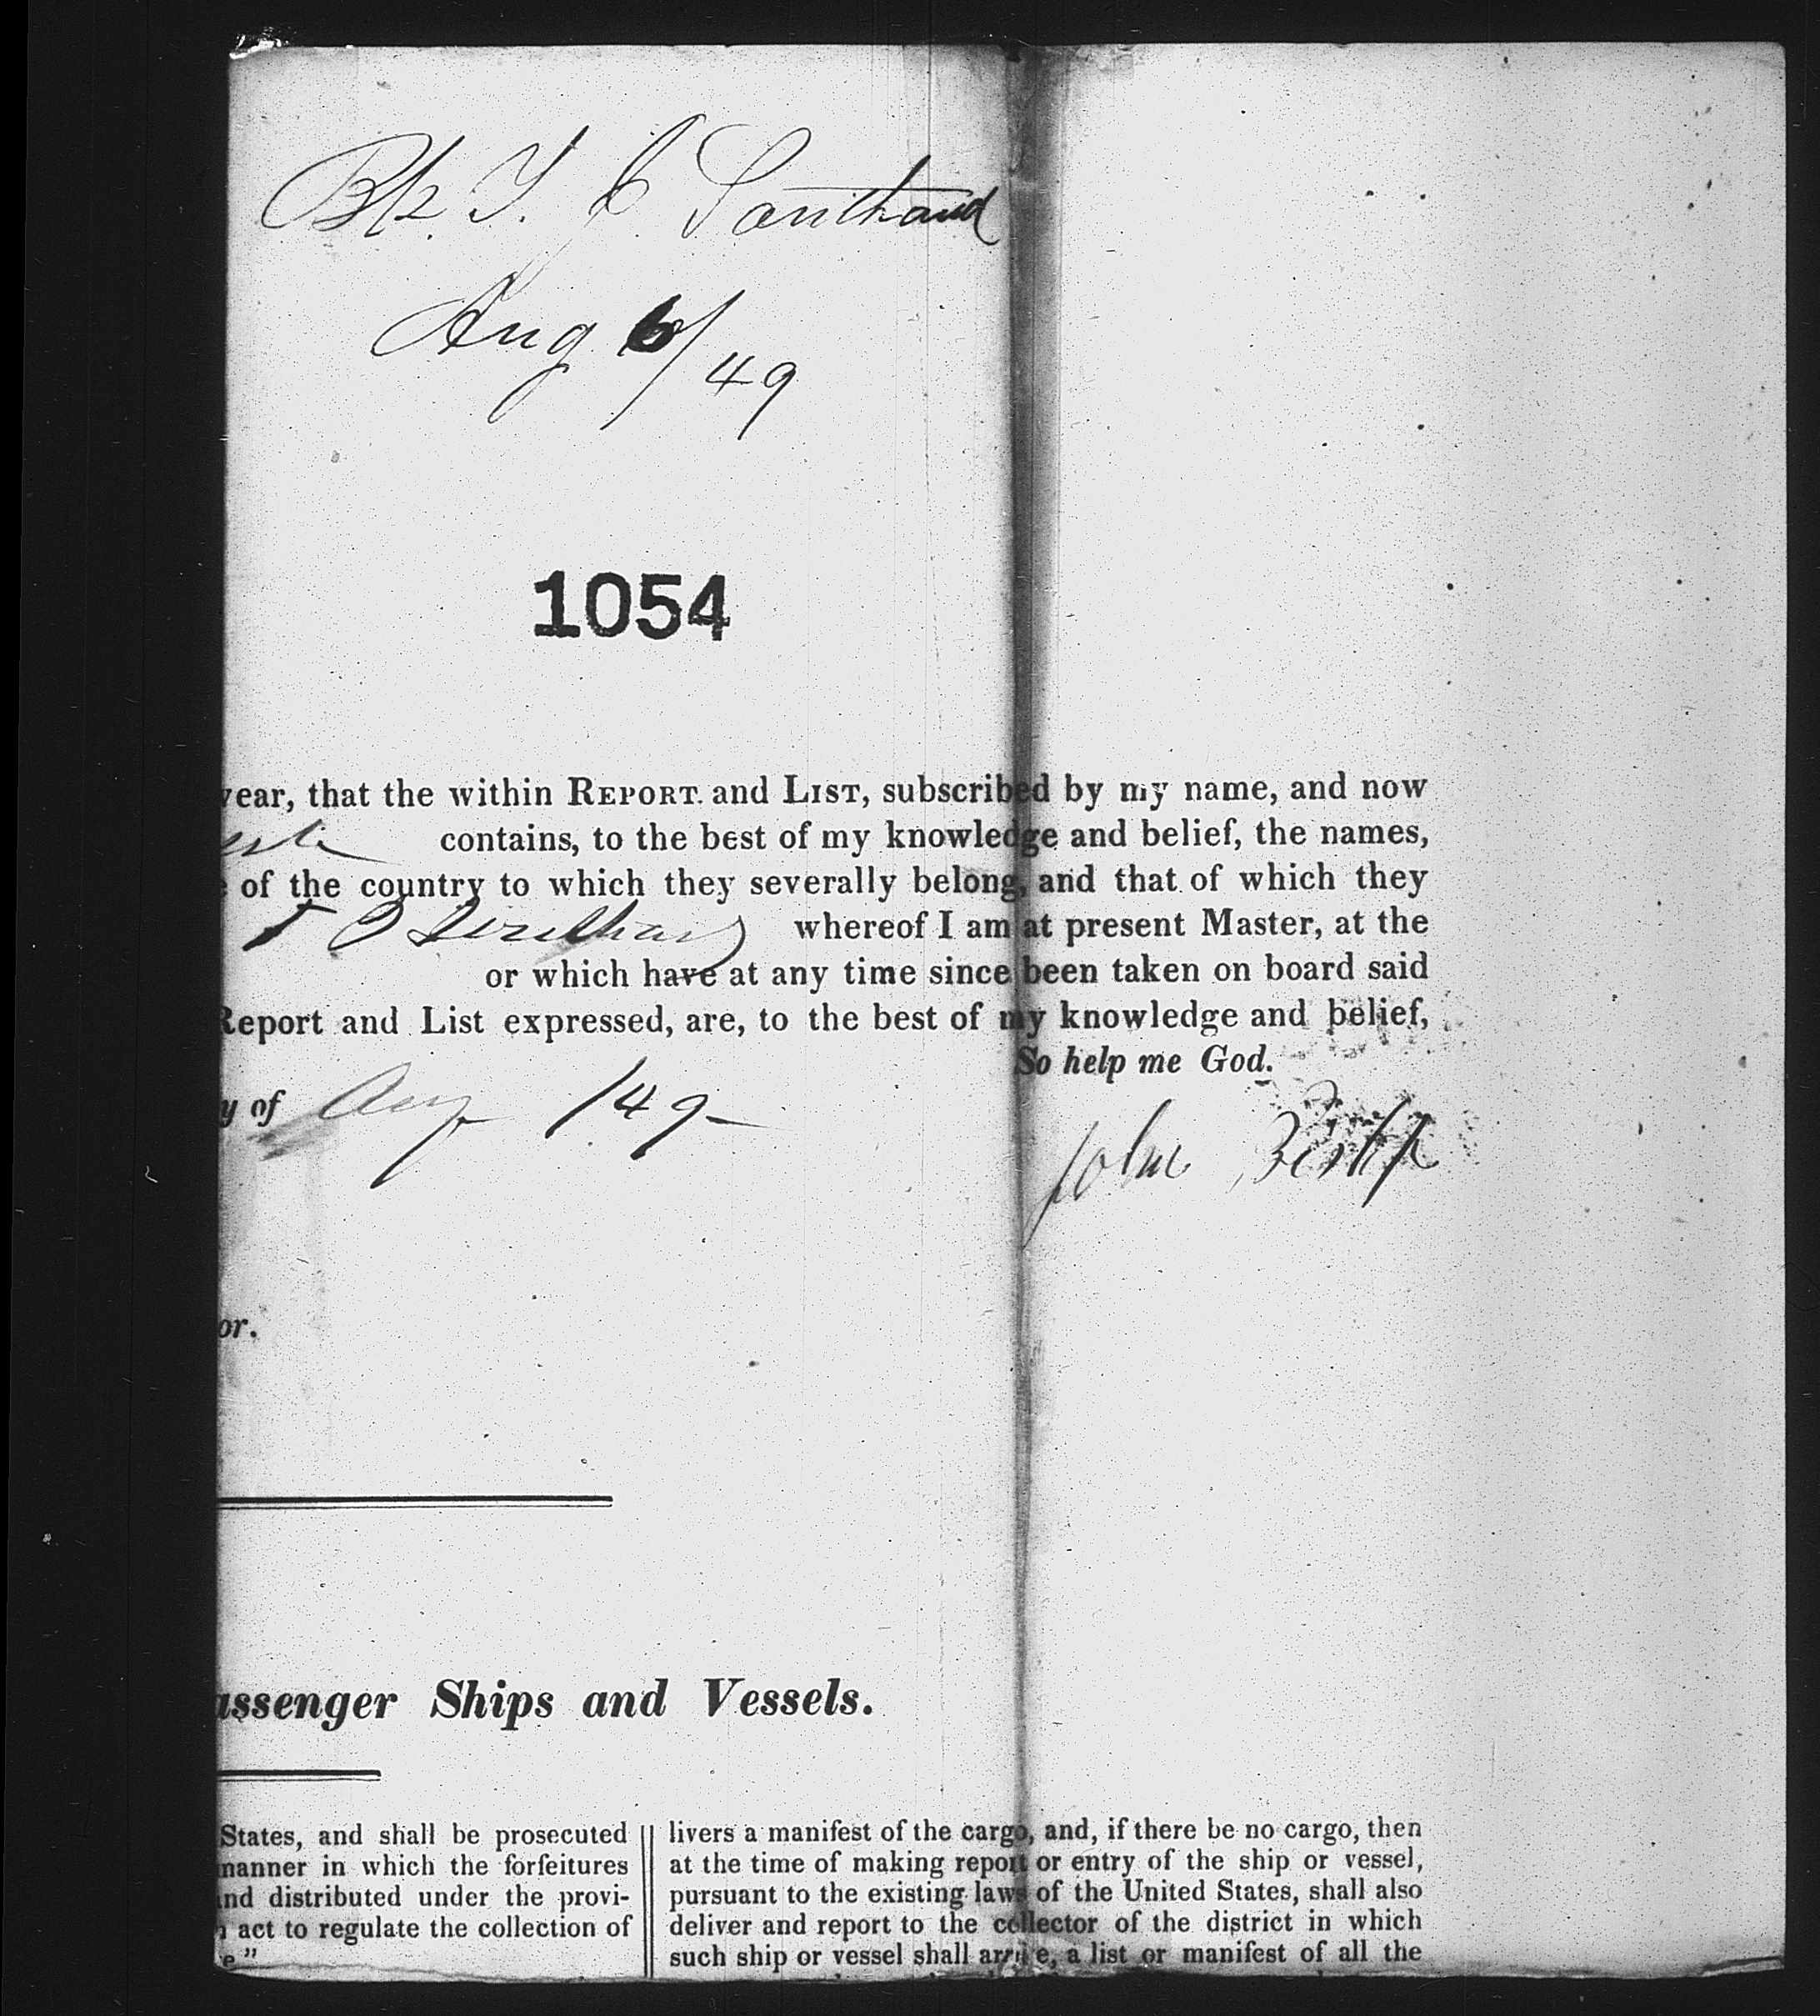 Bk. T. J. Southard
Aug 6/49
1054
year, that the within REPORT. and LIST, subscribed by my name, and now
contains, to the best of my knowledge and belief, the names,
of the country to which they severally belong, and that of which they
whereof I am at present Master, at the
or which have at any time since been taken on board said
Report and List expressed, are, to the best of my knowledge and belief,
So help me God.
y of Aug /49
John
or.
assenger Ships and Vessels.
States, and shall be prosecuted
manner in which the forfeitures
and distributed under the provi-
act to regulate the collection of
e"
livers a manifest of the cargo, and, if there be no cargo, then
at the time of making report or entry of the ship or vessel,
pursuant to the existing laws of the United States, shall also
deliver and report to the collector of the district in which
such ship or vessel shall arrive, a list or manifest of all the